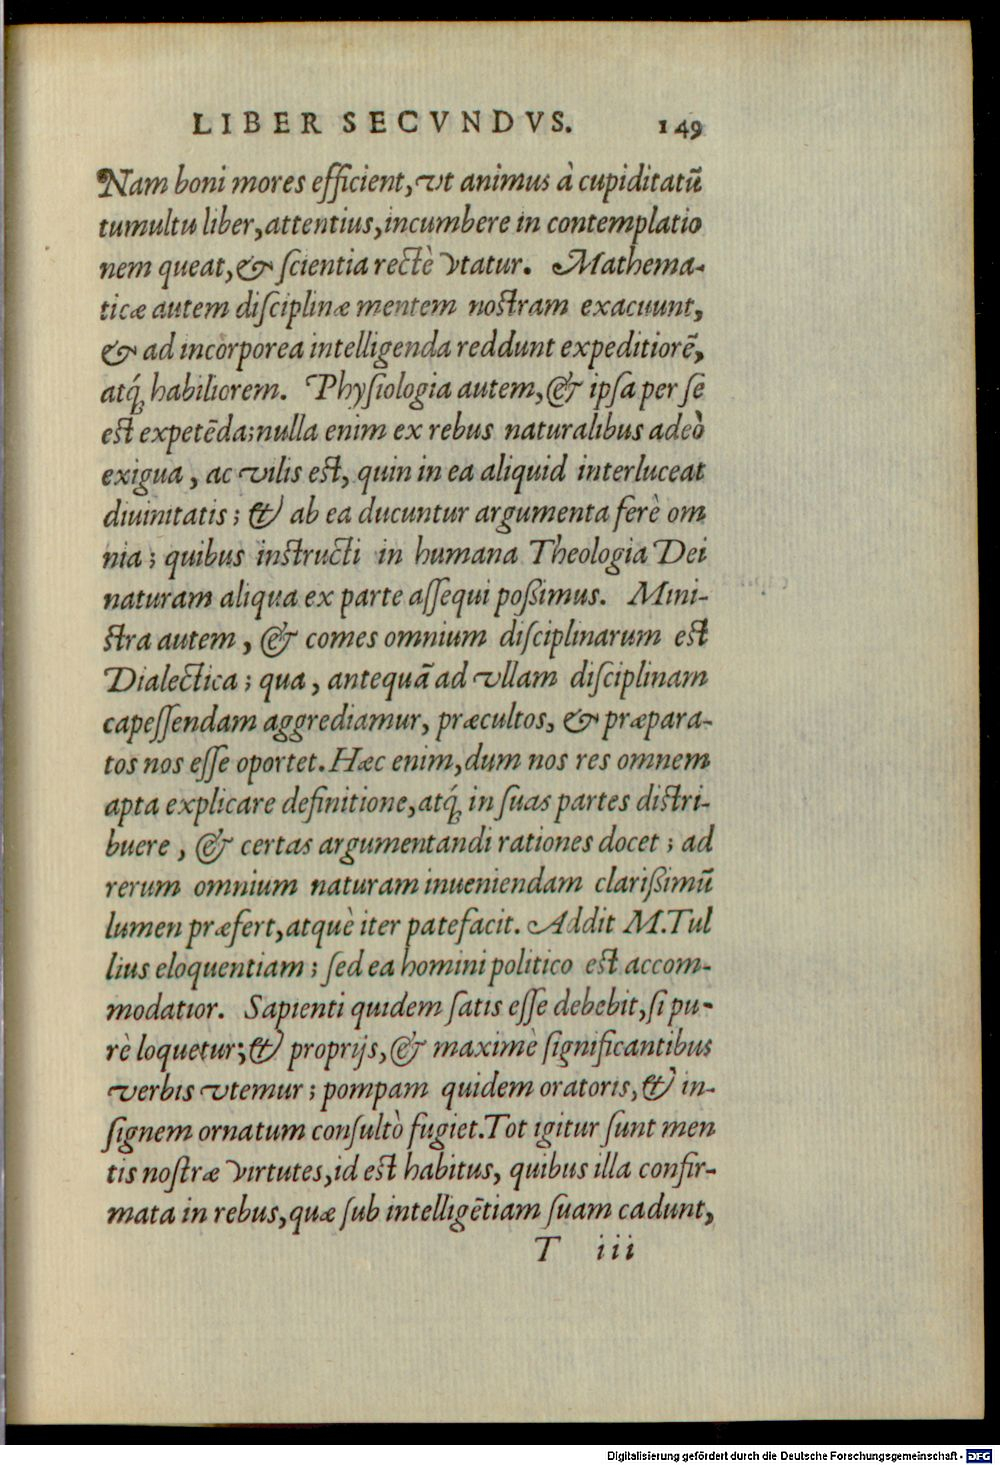 LIBER SECVNDVS. 149
Nam boni mores efficient, vt animus à cupiditatū
tumultu liber, attentius, incumbere in contemplatio
nem queat, & scientia rectè vtatur. Mathema-
ticæ autem disciplinæ mentem nostram exacuunt,
& ad incorporea intelligenda reddunt expeditiorē,
atq́; habiliorem. Physiologia autem, & ipsa per se
est expetēda; nulla enim ex rebus naturalibus adeò
exigua, ac vilis est, quin in ea aliquid interluceat
diuinitatis; & ab ea ducuntur argumenta ferè om
nia; quibus instructi in humana Theologia Dei
naturam aliqua ex parte assequi poßimus. Mini-
stra autem, & comes omnium disciplinarum est
Dialectica; qua, antequā ad vllam disciplinam
capessendam aggrediamur, præcultos, & præpara-
tos nos esse oportet. Hæc enim, dum nos res omnem
apta explicare definitione, atq́; in suas partes distri-
buere, & certas argumentandi rationes docet; ad
rerum omnium naturam inueniendam clarißimū
lumen præfert, atquè iter patefacit. Addit M. Tul
lius eloquentiam; sed ea homini politico est accom-
modatior. Sapienti quidem satis esse debebit, si pu-
rè loquetur; & proprijs, & maximè significantibus
verbis vtemur; pompam quidem oratoris, & in-
signem ornatum consultò fugiet. Tot igitur sunt men
tis nostræ virtutes, id est habitus, quibus illa confir-
mata in rebus, quæ sub intelligētiam suam cadunt,
T iii
Digitalisierung gefördert durch die Deutsche Forschungsgemeinschaft - DFG